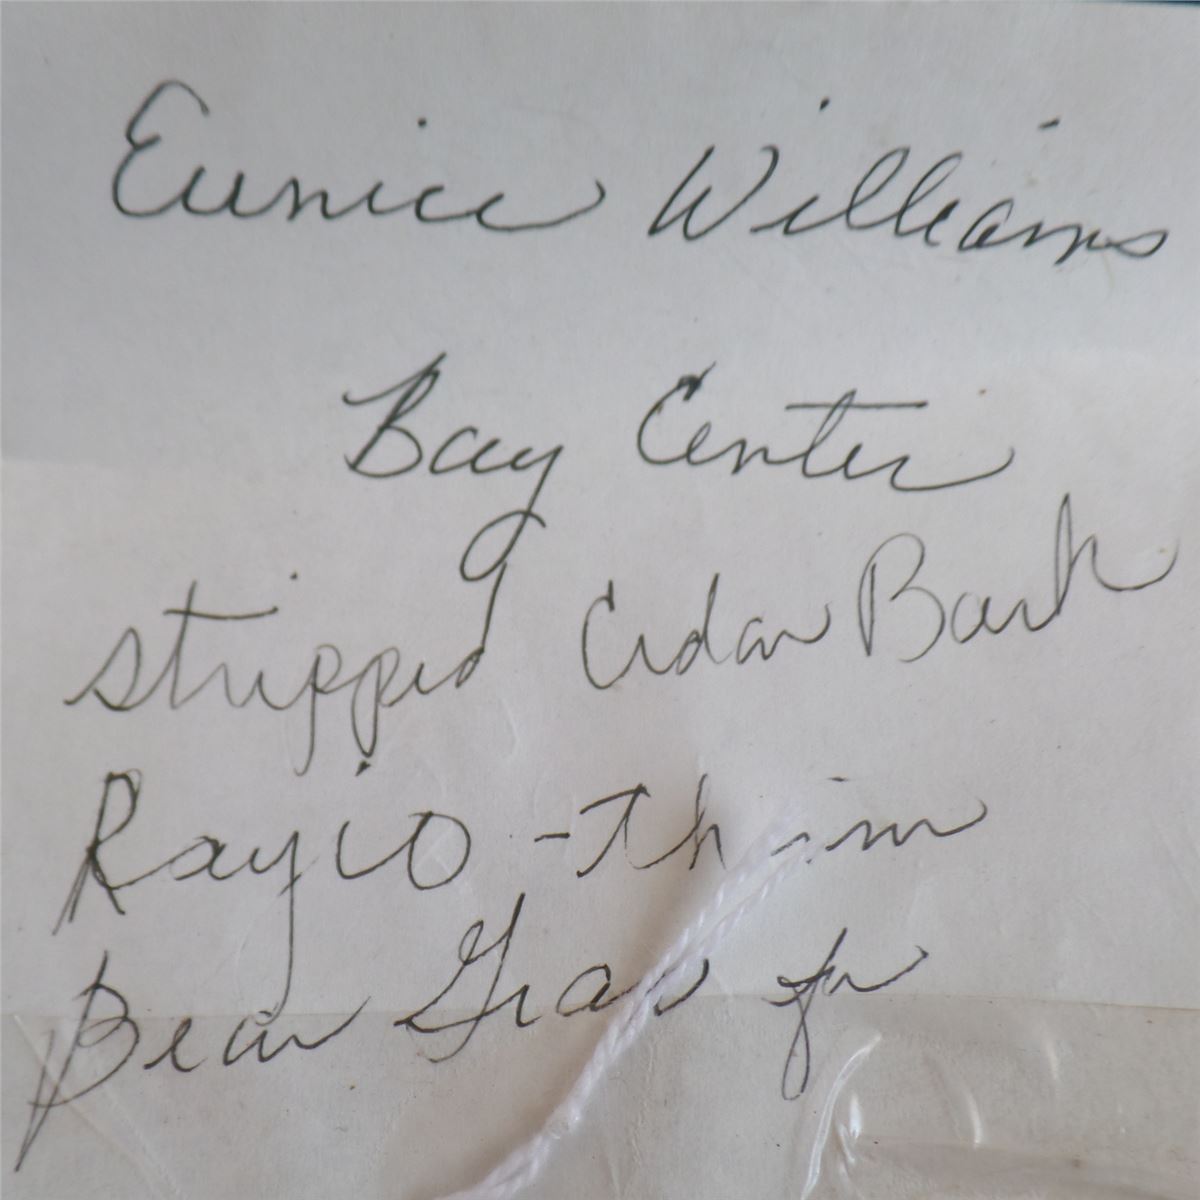 Eunice Williams
Bay Center
stripped Cedar Bark
Rayio - trim
Bear Gras for